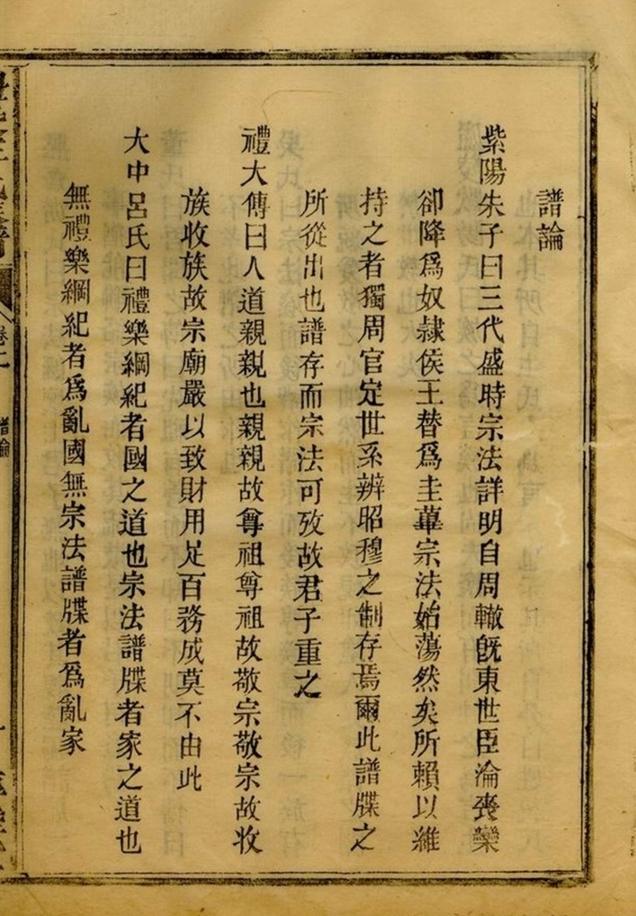 譜論
紫陽朱子曰三代盛時宗法詳明自周轍旣東世臣淪喪欒
卻降爲奴隷侯王替爲圭蓽宗法始蕩然矣所賴以維
持之者獨周官定世系辨昭穆之制存焉爾此譜牒之
所從出也譜存而宗法可攷故君子重之
禮大傳曰人道親親也親親故尊祖尊祖故敬宗敬宗故收
族收族故宗廟嚴以致財用足百務成莫不由此
大中呂氏曰禮樂綱紀者國之道也宗法譜牒者家之道也
無禮樂綱紀者爲亂國無宗法譜牒者爲亂家
譜論